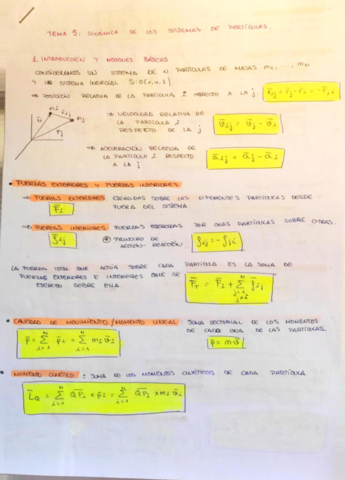 TEMA 5: DINÁMICA DE LOS SISTEMAS DE PARTÍCULAS.
1. INTRODUCCIÓN Y NOCIONES BÁSICAS
CONSIDERAMOS UN SISTEMA DE N PARTÍCULAS DE MASAS m₁, ... mₙ
Y UN SISTEMA INERCIAL S: O(x,y,z)
→ POSICIÓN RELATIVA DE LA PARTÍCULA i RESPECTO A LA j:
→ VELOCIDAD RELATIVA DE
LA PARTÍCULA i
RESPECTO DE LA j
v̄ij = v̄i - v̄j
→ ACELERACIÓN RELATIVA DE
LA PARTÍCULA i RESPECTO
A LA j
āij = āi - āj
• FUERZAS EXTERIORES Y FUERZAS INTERIORES
→ FUERZAS EXTERIORES EJERCIDAS SOBRE LAS DIFERENTES PARTÍCULAS DESDE
FUERA DEL SISTEMA.
F̄i
→ FUERZAS INTERIORES FUERZAS EJERCIDAS POR UNAS PARTÍCULAS SOBRE OTRAS.
f̄ij
* PRINCIPIO DE
ACCIÓN-REACCIÓN
f̄ij = -f̄ji
LA FUERZA TOTAL QUE ACTÚA SOBRE CADA PARTÍCULA ES LA SUMA DE
FUERZAS EXTERIORES E INTERIORES QUE SE
EJERCEN SOBRE ELLA
• CANTIDAD DE MOVIMIENTO/MOMENTO LINEAL: SUMA VECTORIAL DE LOS MOMENTOS
DE CADA UNA DE LAS PARTÍCULAS.
p̄ = Σ p̄i = Σ mi v̄i
p̄ = m v̄
• MOMENTO CINÉTICO: SUMA DE LOS MOMENTOS CINÉTICOS DE CADA PARTÍCULA
L̄Q = Σ QP̄i × p̄i = Σ QP̄i × mi v̄i